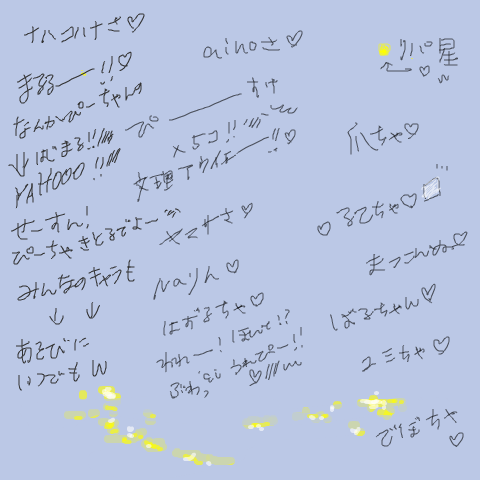 ナハコハナさ♡
まるるー!!♡
なんかぴーちゃんの
↓はじまる!!
YAHOOO!!
せーすん!
ぴーちゃ きとるでよー
みんなのキャラも
↓ ↓
あそびに
いつでもw
ainoさ♡
ぴーすけ
×5コ!!
文理 アウイエー!!♡
ヤマサさ♡
Naりん♡
はおるちゃ♡
われー!ほいて!?
うれぴー!!
♡
リバ星
♡ w
爪ちゃ♡
♡るてちゃ♡
まつこんぬ♡
ばるちゃん♡
ユミちゃ♡
でぽちゃ
♡